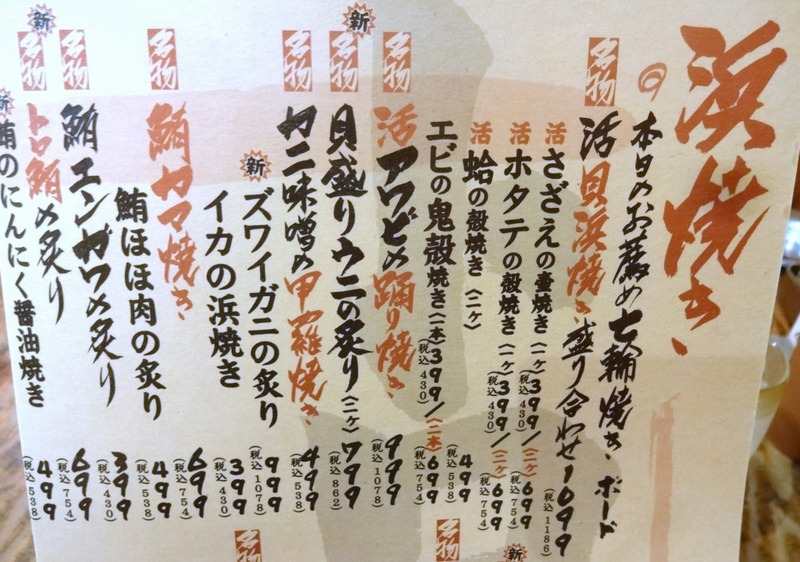 浜焼き
本日のお薦め七輪焼きボード
名物 活貝浜焼き盛り合わせ 1099 (税込1186)
活 さざえの壷焼き (一ケ)399 (税込430)/(二ケ)699 (税込754)
活 ホタテの殻焼き (一ケ)399 (税込430)/(二ケ)699 (税込754)
活 蛤の殻焼き (二ケ) 499 (税込538)
エビの鬼殻焼き (一本)399 (税込430)/(二本)699 (税込754)
名物 活アワビの踊り焼き 999 (税込1078)
新 名物 貝盛りウニの炙り (一ケ) 799 (税込862)
名物 カニ味噌の甲羅焼き 499 (税込538)
新 ズワイガニの炙り 999 (税込1078)
イカの浜焼き 399 (税込430)
名物 鮪カマ焼き 699 (税込754)
鮪ほほ肉の炙り 499 (税込538)
名物 鮪エンガワの炙り 399 (税込430)
新 名物 トロ鮪の炙り 699 (税込754)
新 鮪のにんにく醤油焼き 499 (税込538)
名物
新
名物